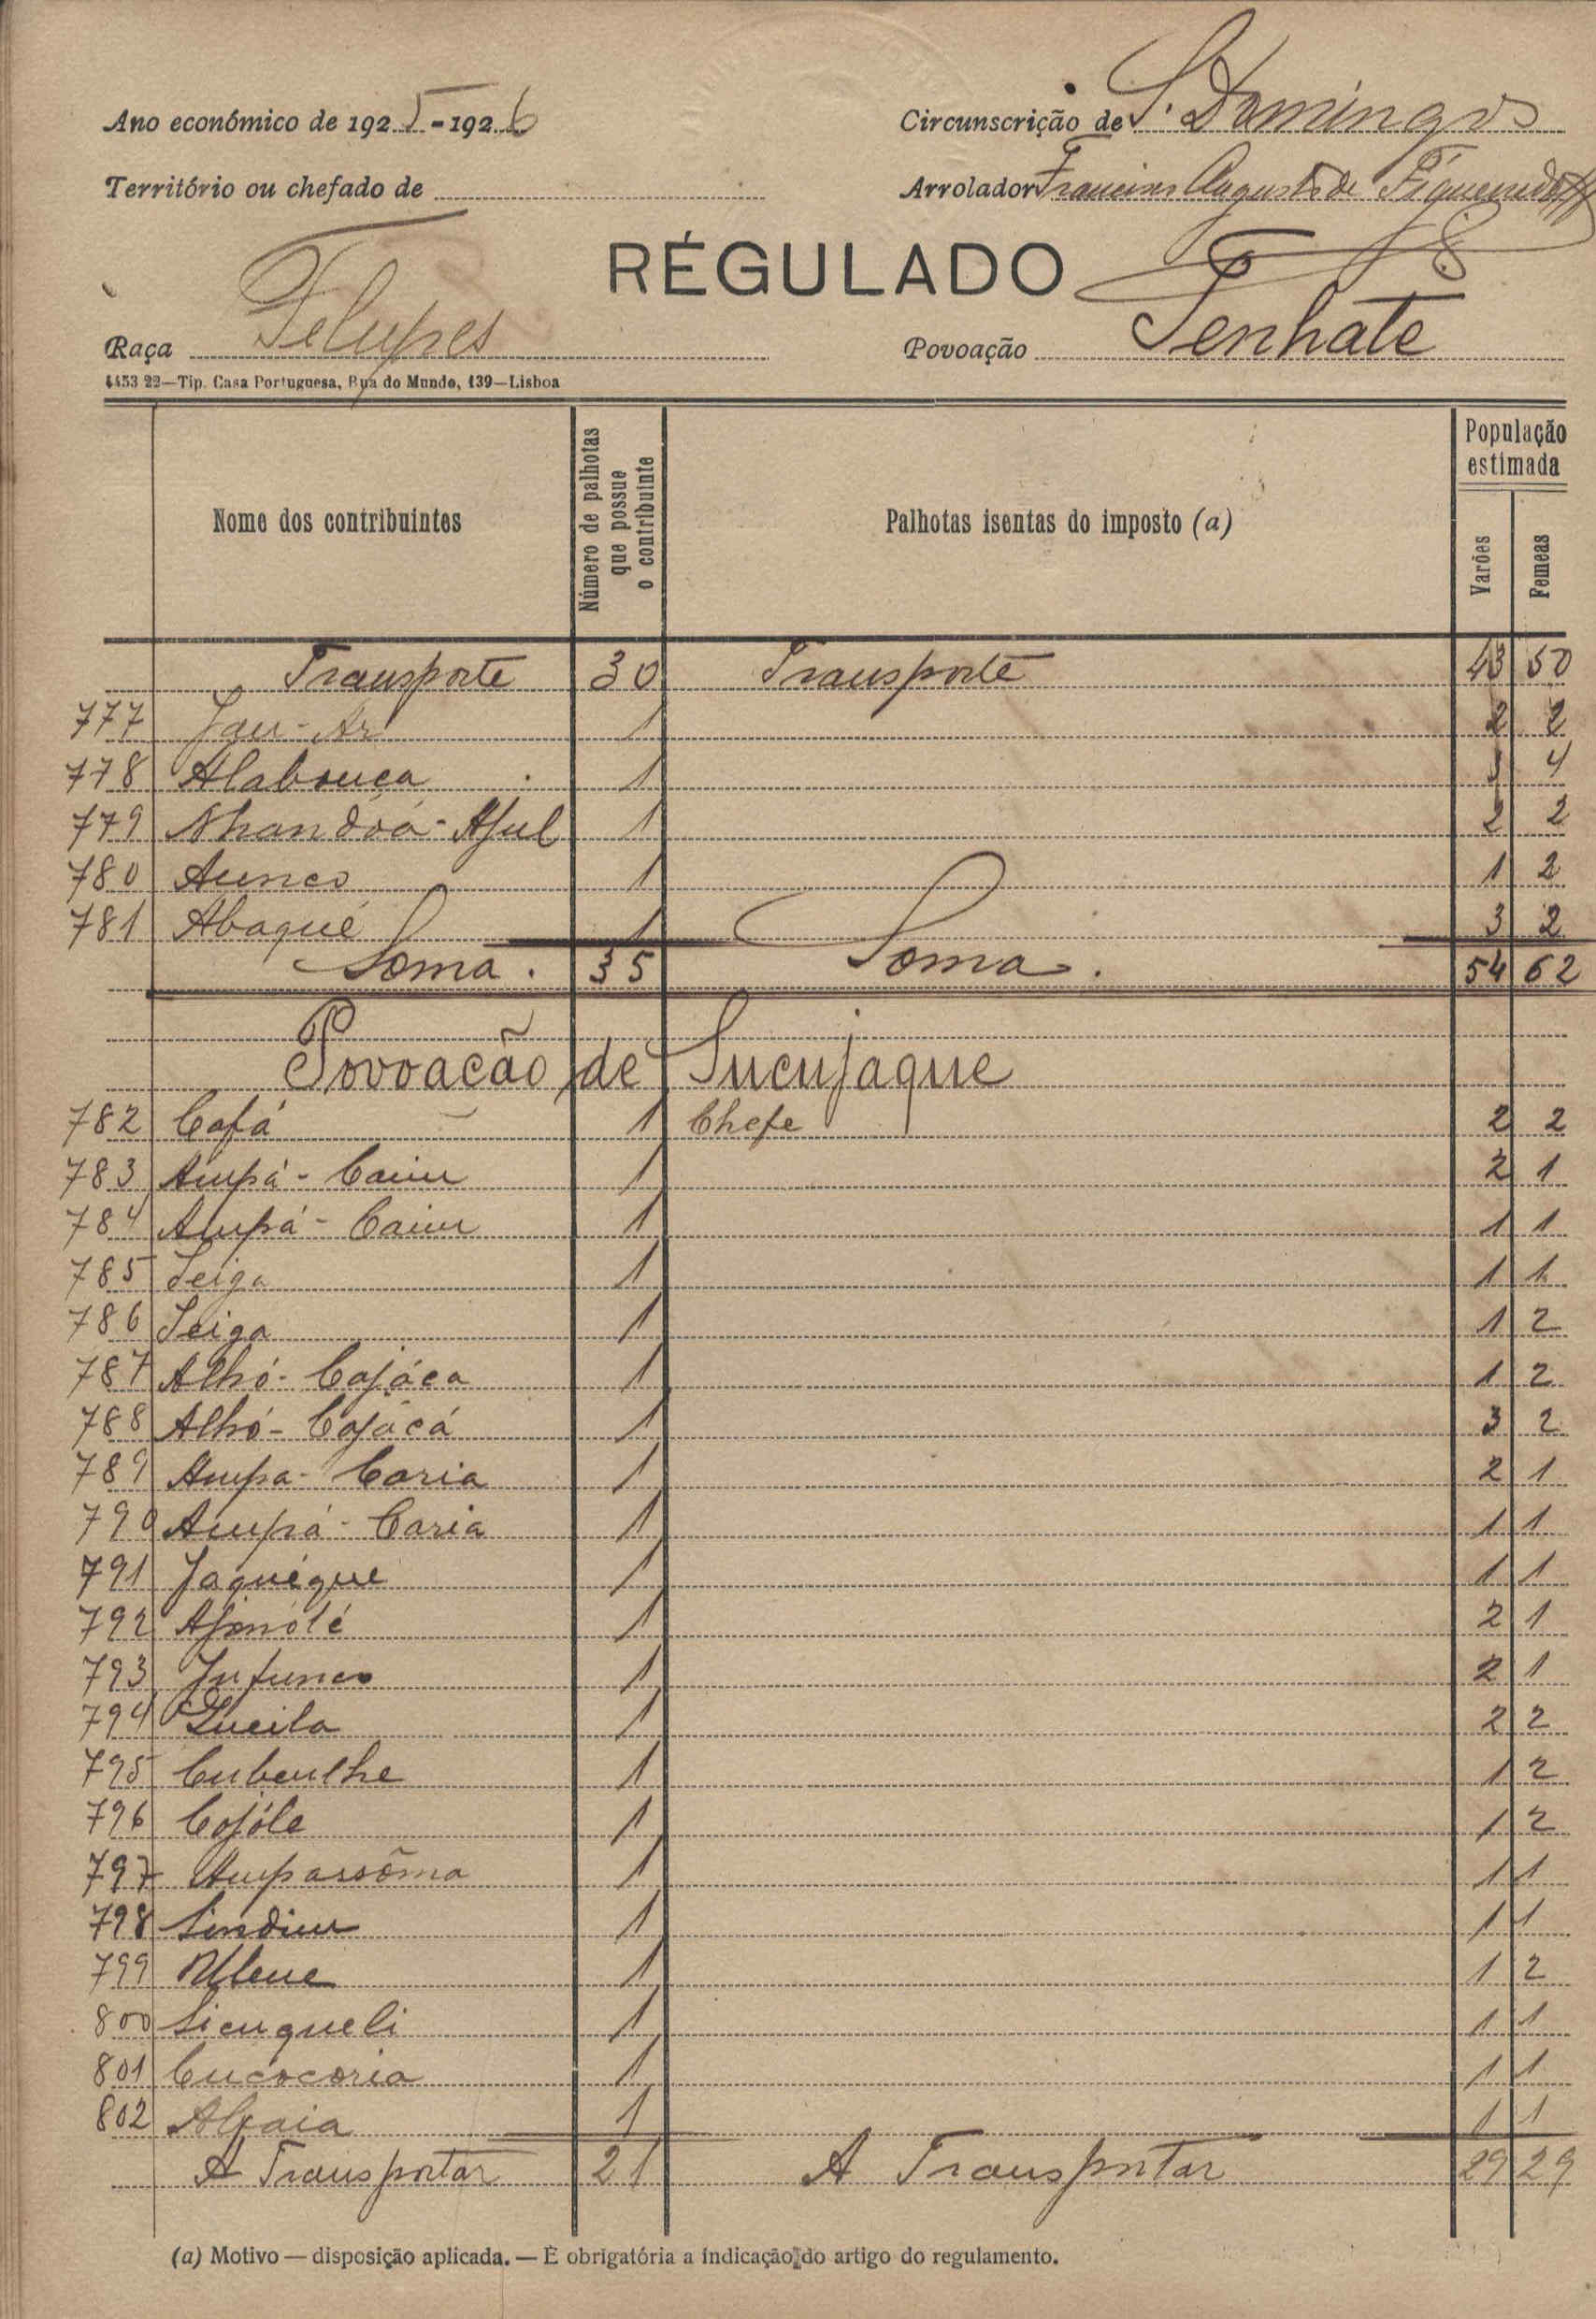 Ano económico de 1925-1926
Circunscrição de S. Domingos
Território ou chefado de
Arrolador Francisco Augusto de Figueiredo
RÉGULADO
Raça Felupes
Povoação Tenhate
4453 22—Tip. Casa Portuguesa, Rua do Mundo, 139—Lisboa
Nome dos contribuintes
Número de palhotas que possue o contribuinte
Palhotas isentas do imposto (a)
População estimada
Varões
Femeas
Transporte 30 Transporte 43 50
777 Jau-Ar 1 2 2
778 Alabouca 1 3 4
779 Nhandóá-Ajul 1 2 2
780 Aunco 1 1 2
781 Abaqué 1 3 2
Soma. 35 Soma. 54 62
Povoacão de Sucujaque
782 Cafá 1 Chefe 2 2
783 Ampá-Caiu 1 2 1
784 Ampá-Caiu 1 1 1
785 Seiga 1 1 1
786 Seiga 1 1 2
787 Alhó-Cajáca 1 1 2
788 Alhó-Cajácá 1 3 2
789 Ampa-Caria 1 2 1
790 Ampá-Caria 1 1 1
791 Jaquéque 1 1 1
792 1 2 1
793 Jufunco 1 2 1
794 1 2 2
795 Cubeulhe 1 1 2
796 Cojóle 1 1 2
797 Ampassôma 1 1 1
798 Sindiu 1 1 1
799 1 1 2
800 Sicuqueli 1 1 1
801 Cucocoria 1 1 1
802 1 1 1
A Transportar 21 A Transportar 29 29
(a) Motivo — disposição aplicada. — É obrigatória a indicação do artigo do regulamento.